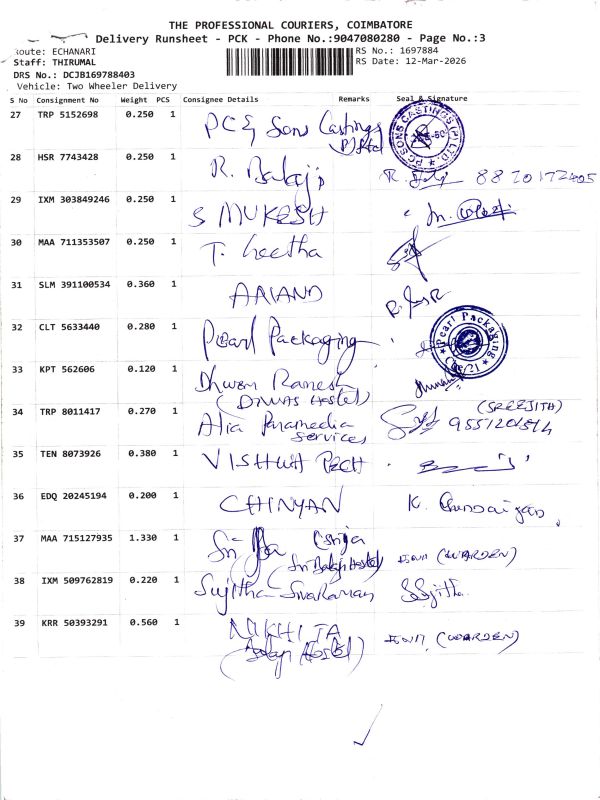 THE PROFESSIONAL COURIERS, COIMBATORE
Delivery Runsheet - PCK - Phone No.:9047080280 - Page No.:3
Route: ECHANARI
RS No.: 1697884
Staff: THIRUMAL
RS Date: 12-Mar-2026
DRS No.: DCJB169788403
Vehicle: Two Wheeler Delivery
S No Consignment No Weight PCS Consignee Details Remarks Seal & Signature
27 TRP 5152698 0.250 1 PC & Sons Castings
P) Ltd
PC SONS CASTINGS (P) LTD.
28 HSR 7743428 0.250 1 R. Balaji
29 IXM 303849246 0.250 1 S MUKESH
30 MAA 711353507 0.250 1 T. Geetha
31 SLM 391100534 0.360 1 ANAND
32 CLT 5633440 0.280 1 Pearl Packaging
Pearl Packaging
33 KPT 562606 0.120 1 Ramesh
Hostel)
34 TRP 8011417 0.270 1 Paramedia
services
(SREEJITH)
35 TEN 8073926 0.380 1 VISHWA TECH
36 EDQ 20245194 0.200 1 CHINYAN
37 MAA 715127935 1.330 1 Sri
(Sri Balaji Hostel) (WARDEN)
38 IXM 509762819 0.220 1 Sujitha Sivaraman
39 KRR 50393291 0.560 1 NIKHITA (WARDEN)
(Balaji Hostel)